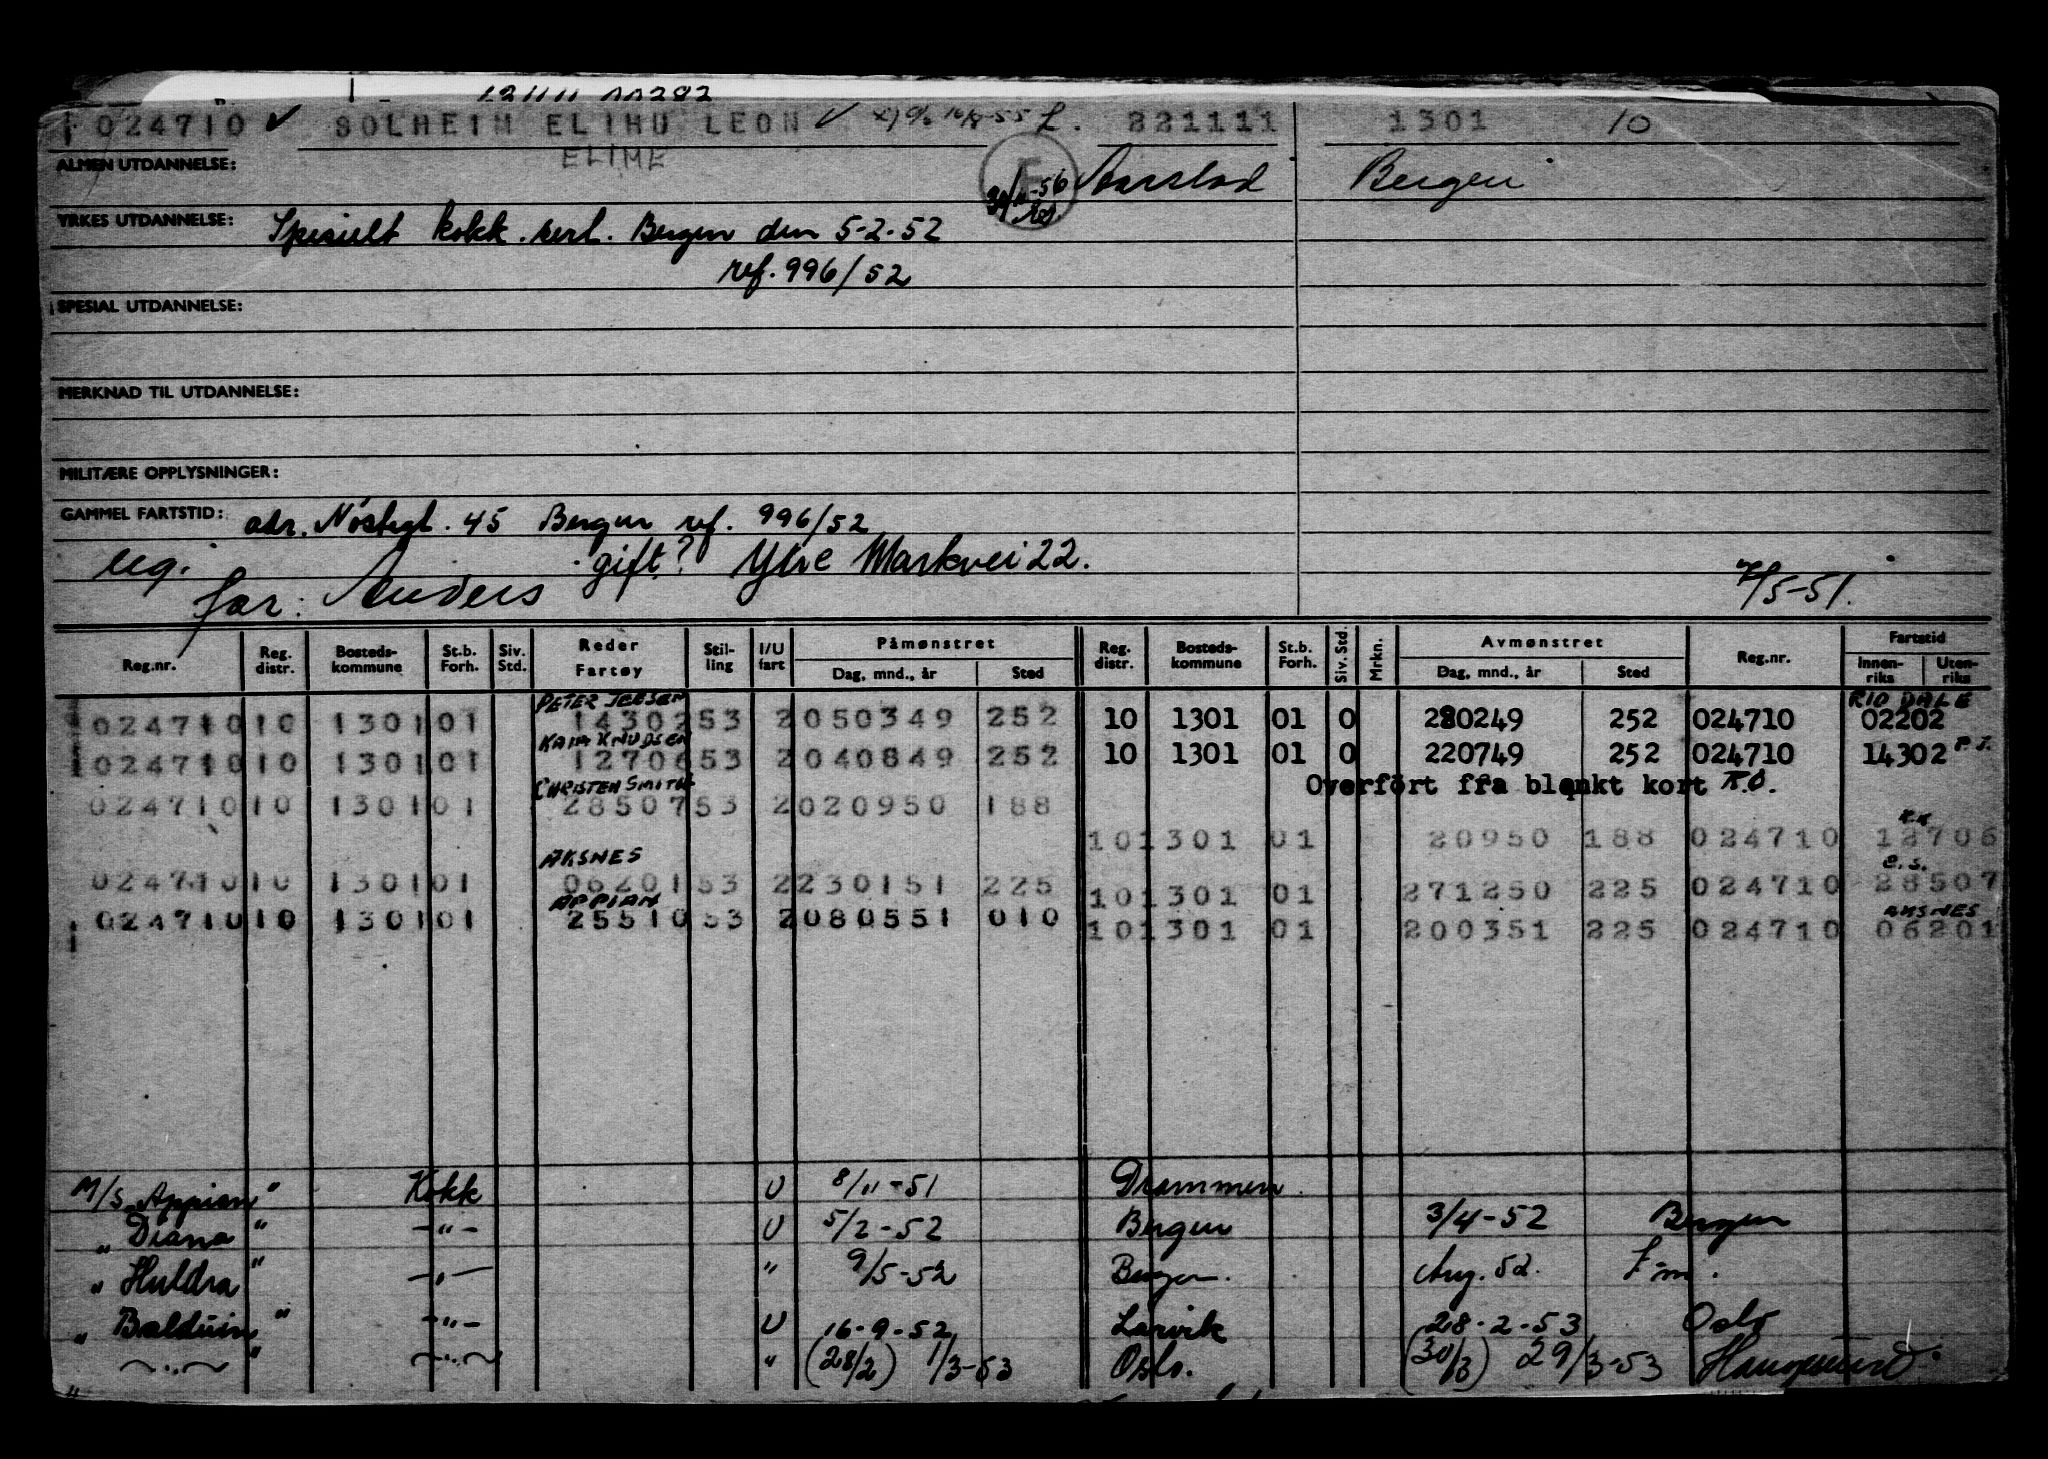 024710 ✓ SOLHEIM ELIHU LEON ✓ 221111 1301 10
ELIME
ALMEN UTDANNELSE: Aarstad Bergen
30/11-56
YRKES UTDANNELSE: Spesielt kokk.sert. Bergen den 5-2-52
ref. 996/52
SPESIAL UTDANNELSE:
MERKNAD TIL UTDANNELSE:
MILITÆRE OPPLYSNINGER:
GAMMEL FARTSTID: adr. Nøstegt. 45 Bergen ref. 996/52
ug. gift? Ytre Markvei 22.
far: Anders 7/5-51.
Reg.nr. Reg. distr. Bosteds-kommune St.b. Forh. Siv. Std. Reder Fartøy Stil-ling I/U fart Påmønstret Dag, mnd., år Sted Reg. distr. Bosteds-kommune St.b. Forh. Siv. Std. Mrkn. Avmønstret Dag, mnd., år Sted Reg.nr. Fartstid Innen-riks Uten-riks
PETER JEBSEN RIO DALE
024710 10 1301 01 14302 53 2 050349 252 10 1301 01 0 280249 252 024710 02202
KAIA KNUDSEN
024710 10 1301 01 12706 53 2 040849 252 10 1301 01 0 220749 252 024710 14302 P.J.
CHRISTEN SMITH Overført fra blankt kort K.O.
024710 10 1301 01 28507 53 2 020950 188
K.K.
10 1301 01 20950 188 024710 12706
AKSNES C.S.
024710 10 1301 01 06201 53 2 230151 225 10 1301 01 271250 225 024710 28507
APPIAN AKSNES
024710 10 1301 01 25510 53 2 080551 010 10 1301 01 200351 225 024710 06201
M/S „Appian" Kokk U 8/11-51 Drammen
„ Diana " -"- U 5/2-52 Bergen 3/4-52 Bergen
„ Huldra " -"- " 9/5-52 Bergen. Aug. 52.
„ Balduin " -"- U 16-9-52 Larvik 28-2-53 Oslo
" -"- " (28/2) 1/3-53 Oslo. (30/3) 29/3-53 Haugesund.